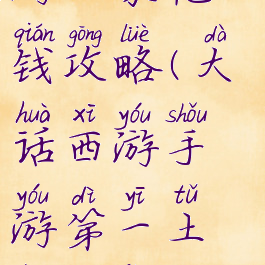 qián gōng lüè dà
钱攻略(大
huà xī yóu shǒu
话西游手
yóu dì yī tǔ
游第一土